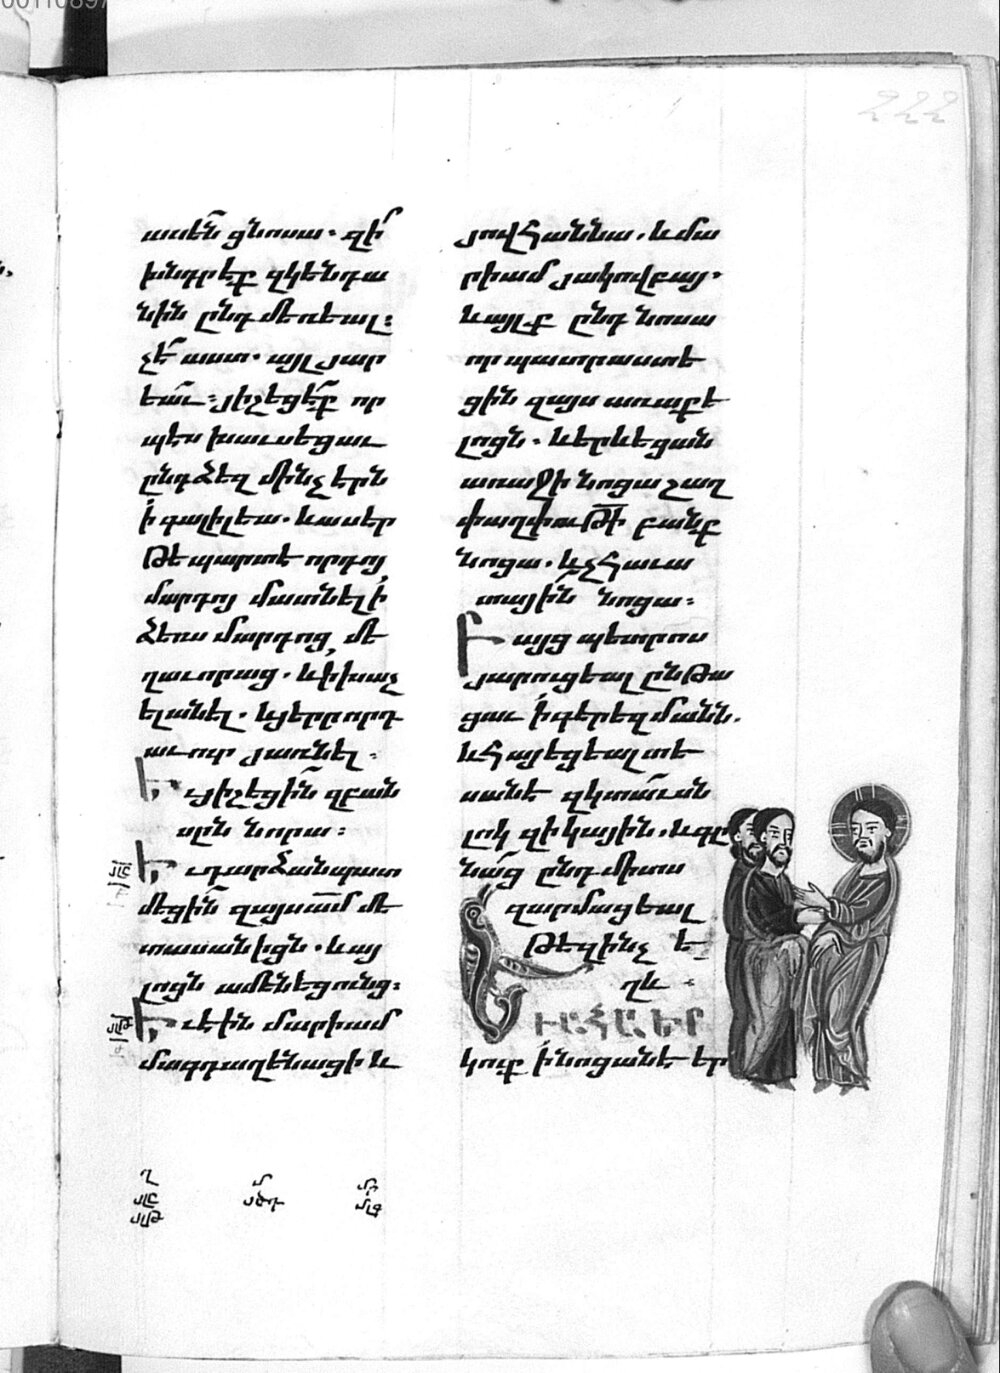 222
ասեն ցնոսա. զի՞
խնդրէք զկենդա
նին ընդ մեռեալ։
չէ՛ աստ. այլ յար
եաւ. յիշեցէ՛ք որ
պէս խաւսեցաւ
ընդ ձեզ մինչ էրն
ի գալիլեա. և ասէր
թէ պարտ է որդոյ
մարդոյ մատնել ի
ձեռս մարդոց մե
ղաւորաց. և ի խաչ
ելանել. և յերրորդ
աւուր յառնել։
Եւ յիշեցին զբան
սըն նորա։
Եւ դարձան պատ
մեցին զայս ամ մե
տասանիցն. և այ
լոցն ամենեցունց։
Եւ էին մարիամ
մագդաղենացի և
յովհաննա. և մա
րիամ յակովբայ.
և այլք ընդ նոսա
որ պատրաստե
ցին զայս առաքե
լոցն. և երևեցան
առաջի նոցա շաղ
փաղփութի բանք
նոցա. և չհաւա
տային նոցա։
Բայց պետրոս
յարուցեալ ընթա
ցաւ ի գերեզմանն.
և հայեցեալ տե
սանէ զկտաւսն
լոկ զի կային. և գը
նաց ընդ միտս
զարմացեալ
թէ զինչ է
ղև
ԵՒ ԱՀԱ ԵՐ
կուք ի նոցանէ, եր